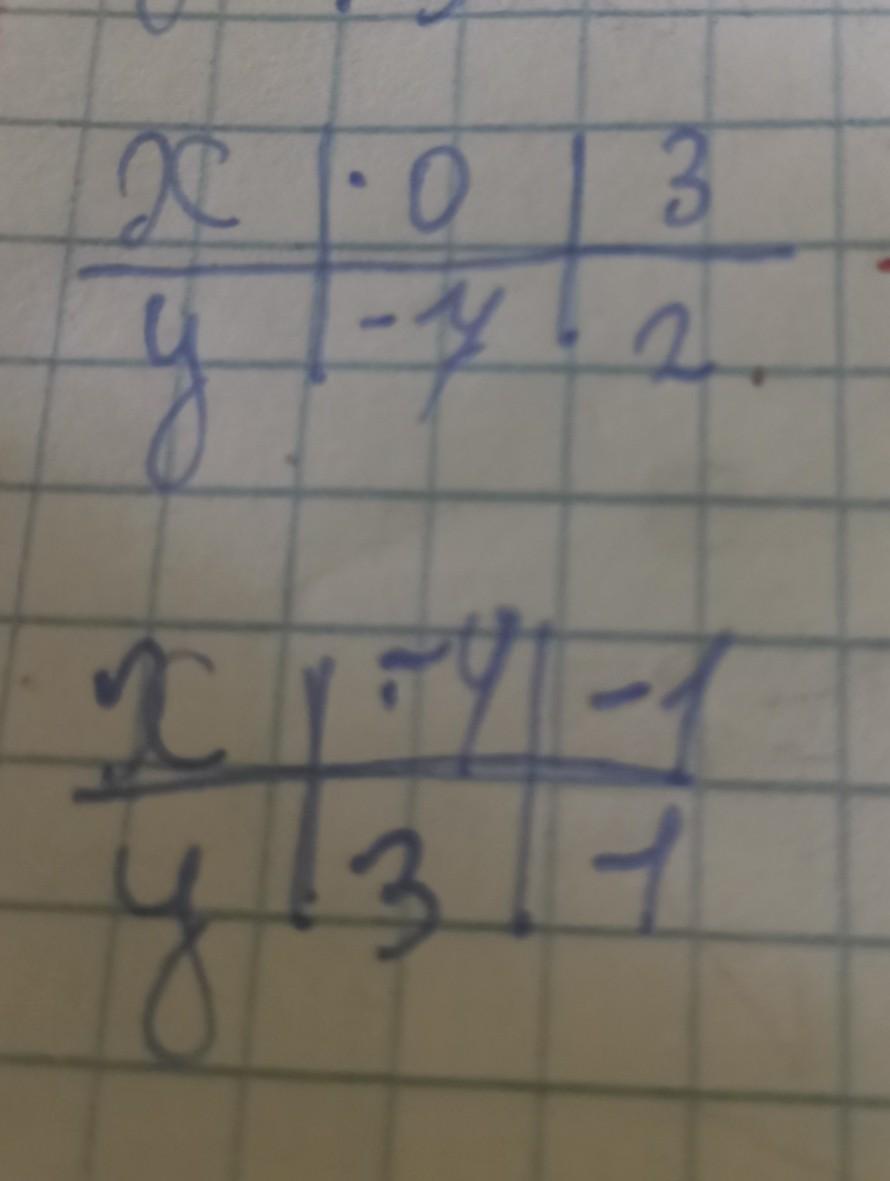 x 0 3
y -7 2
x -4 -1
y 3 -1